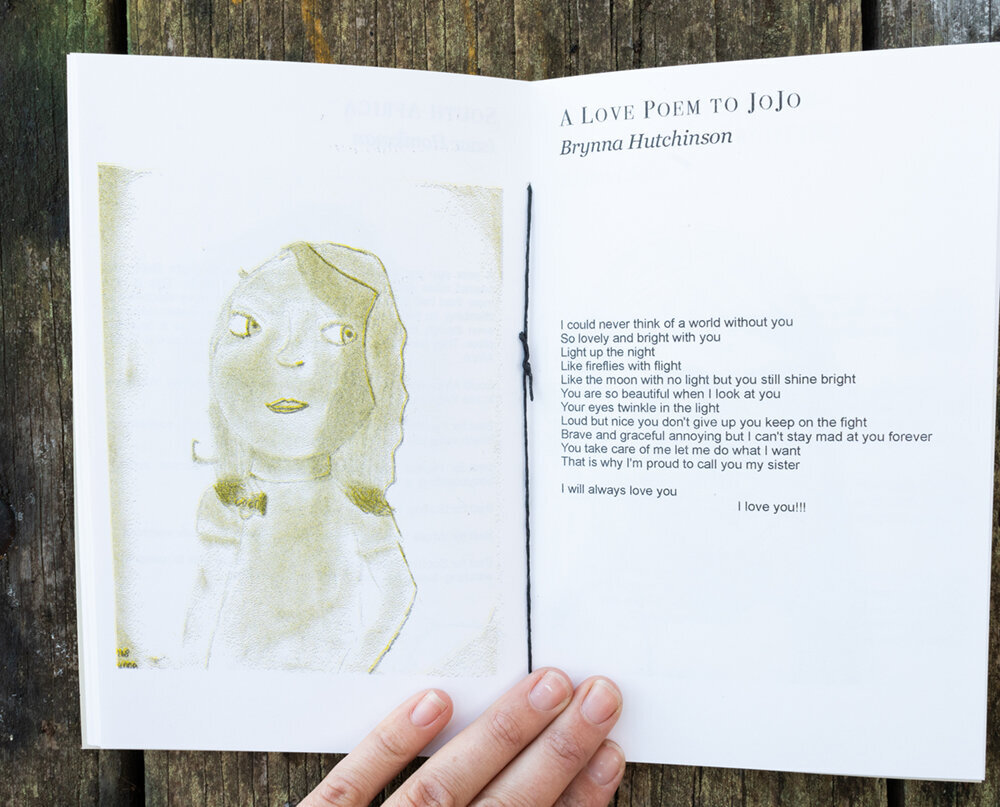 A Love Poem to JoJo
Brynna Hutchinson
I could never think of a world without you
So lovely and bright with you
Light up the night
Like fireflies with flight
Like the moon with no light but you still shine bright
You are so beautiful when I look at you
Your eyes twinkle in the light
Loud but nice you don't give up you keep on the fight
Brave and graceful annoying but I can't stay mad at you forever
You take care of me let me do what I want
That is why I'm proud to call you my sister
I will always love you
I love you!!!
South Africa